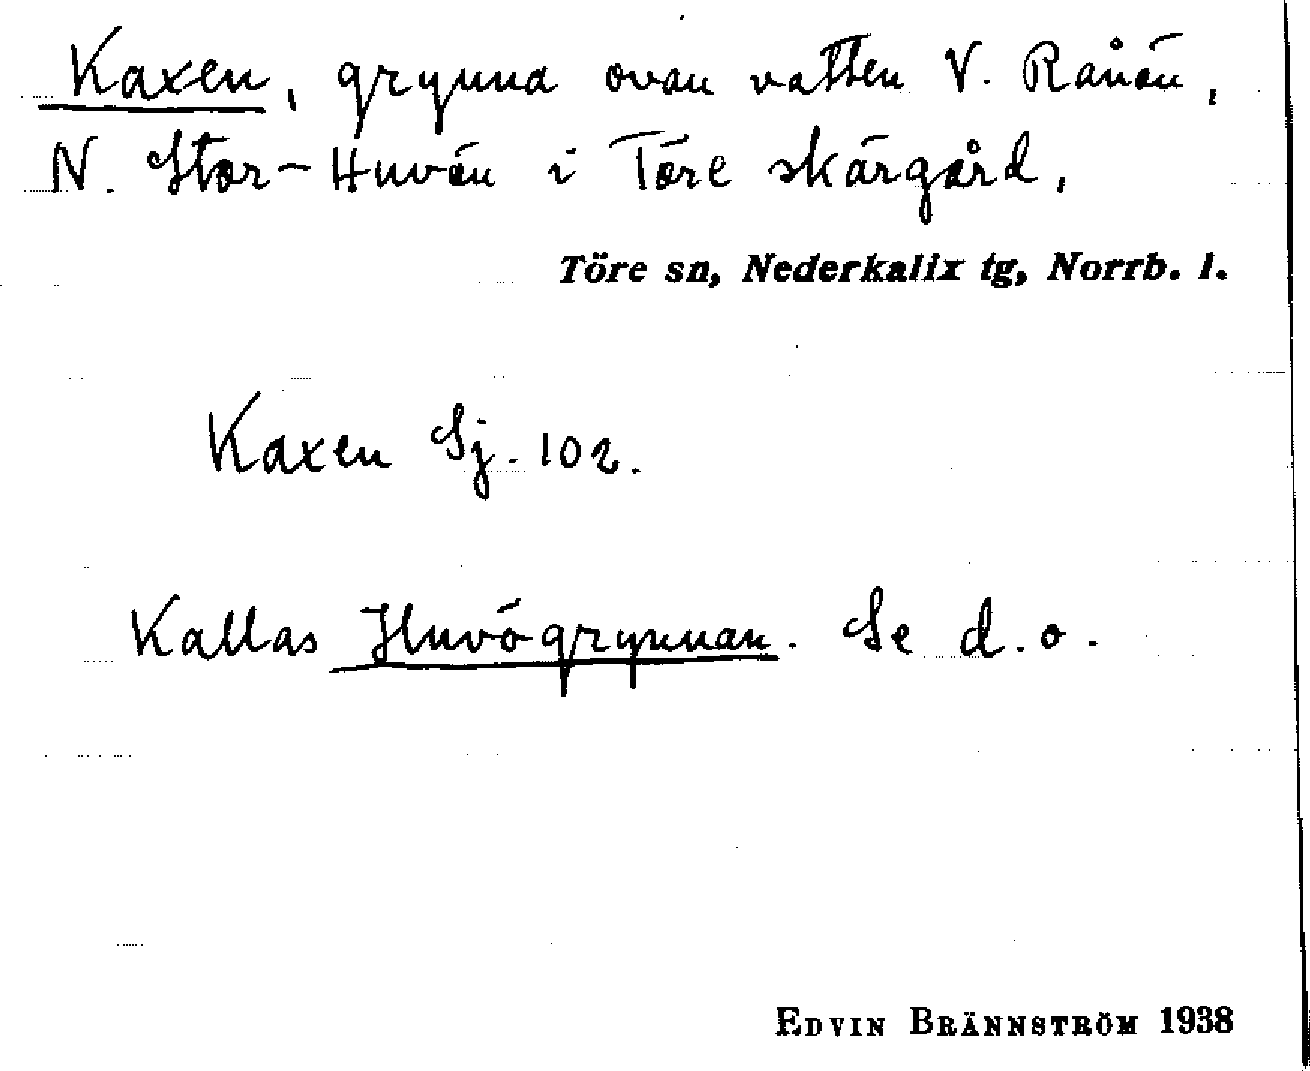 Kaxen, grynna ovan vatten V. Rånön,
N. Stor-Huvön i Töre skärgård,
Töre sn, Nederkalix tg, Norrb. l.
Kaxen Sj. 102.
Kallas Huvögrynnan. Se d.o.
EDVIN BRÄNNSTRÖM 1938